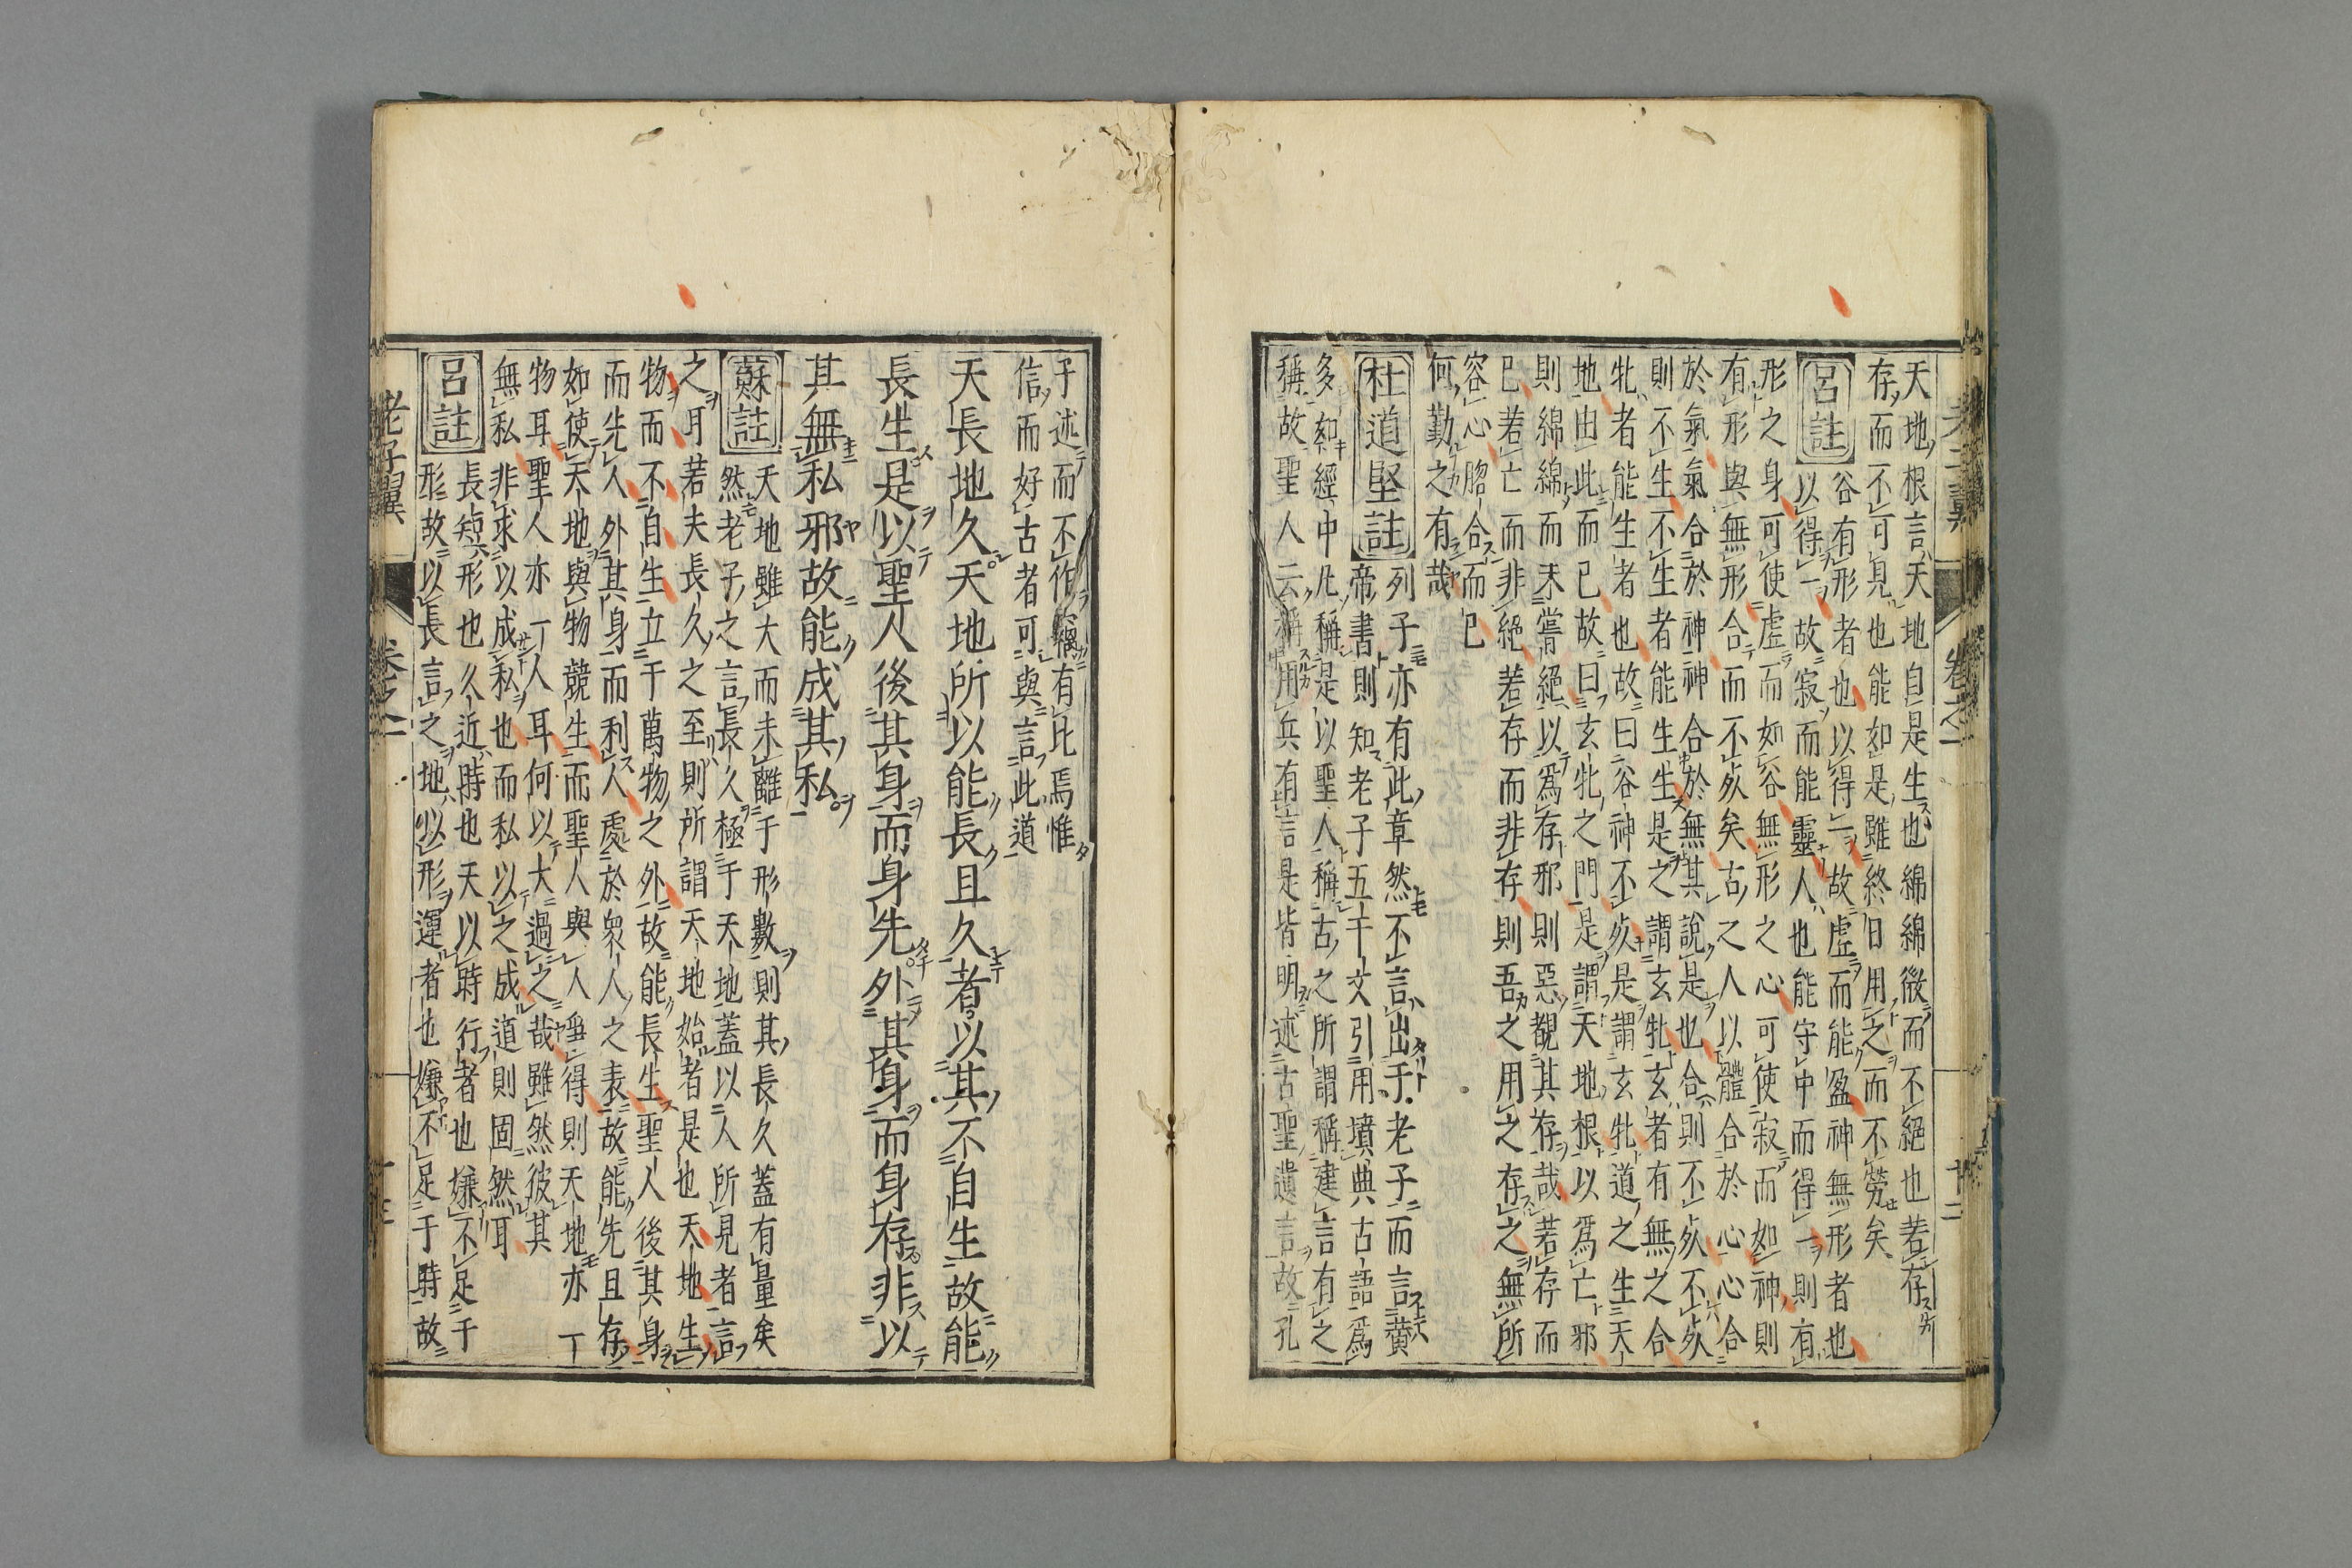 天地根言天地自是生也綿綿微而不絕也若存
存而不可見也能如是雖終日用之而不勞矣
呂註
谷有形者也以得一故虛而能盈神無形者也
以得一故寂而能靈人也能守中而得一則有
形之身可使虛而如谷無形之心可使寂而如神則
有形與無形合而不死矣古之人以體合於心心合
於氣氣合於神神合於無其說是也合則不死不死
則不生不生者能生生是之謂玄牝玄者有無之合
牝者能生者也故曰谷神不死是謂玄牝道之生天
地由此而已故曰玄牝之門是謂天地根以爲亡邪
則綿綿而未嘗絕以爲存邪則惡覩其存哉若存而
已若亡而非絕若存而非存則吾之用之存之無所
容心脗合而已
何勤之有哉
杜道堅註
列子亦有此章然不言出于老子而言黃
帝書則知老子五千文引用墳典古語爲
多如經中凡稱是以聖人稱古之所謂稱建言有之
稱故聖人云稱用兵有言是皆明述古聖遺言故孔
子述而不作竊有比焉惟
信而好古者可與言此道
天長地久天地所以能長且久者以其不自生故能
長生是以聖人後其身而身先外其身而身存非以
其無私邪故能成其私
蘇註
天地雖大而未離于形數則其長久蓋有量矣
然老子之言長久極于天地蓋以人所見者言
之耳若夫長久之至則所謂天地始者是也天地生
物而不自生立于萬物之外故能長生聖人後其身
而先人外其身而利人處於衆人之表故能先且存
如使天地與物競生而聖人與人爭得則天地亦丁
物耳聖人亦丁人耳何以大過之哉雖然彼其
無私非求以成私也而私以之成道則固然耳
呂註
長短形也久近時也天以時行者也嫌不足于
形故以長言之地以形運者也嫌不足于時故
老子翼
卷之一
十二